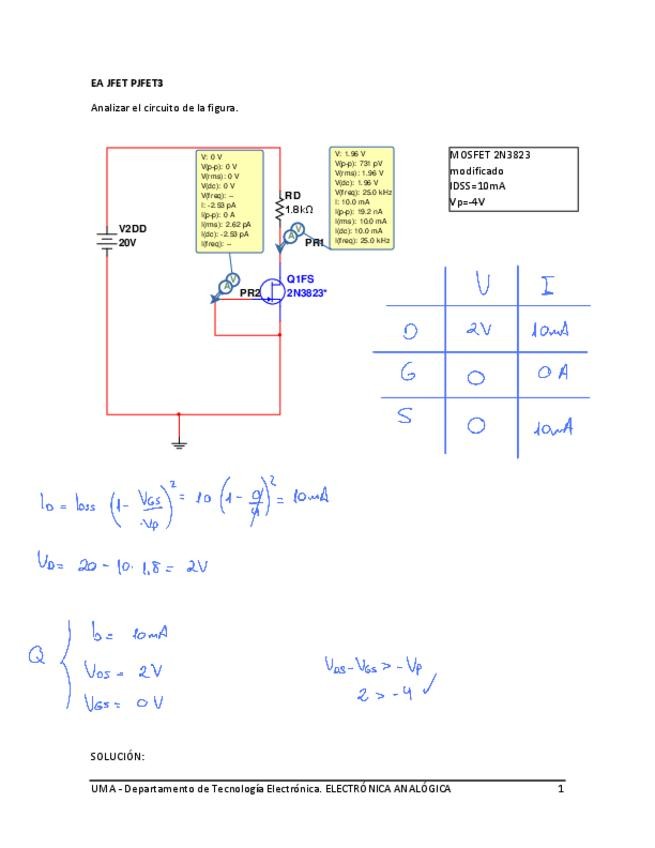 EA JFET PJFET3
Analizar el circuito de la figura.
V: 0 V
V(p-p): 0 V
V(rms): 0 V
V(dc): 0 V
V(freq): --
I: -2.53 pA
I(p-p): 0 A
I(rms): 2.62 pA
I(dc): -2.53 pA
I(freq): --
V: 1.96 V
V(p-p): 731 pV
V(rms): 1.96 V
V(dc): 1.96 V
V(freq): 25.0 kHz
I: 10.0 mA
I(p-p): 19.2 nA
I(rms): 10.0 mA
I(dc): 10.0 mA
I(freq): 25.0 kHz
MOSFET 2N3823
modificado
IDSS=10mA
Vp=-4V
RD
1.8kΩ
V2DD
20V
PR1
PR2
A V
A V
Q1FS
2N3823*
V I
D 2V 10mA
G 0 0 A
S 0 10mA
ID = IDSS (1 - VGS/Vp)² = 10 (1 - 0/4)² = 10mA
VD = 20 - 10 · 1,8 = 2V
Q { ID = 10mA
VDS = 2V
VGS = 0V
VDS - VGS > - Vp
2 > - 4 ✓
SOLUCIÓN:
UMA - Departamento de Tecnología Electrónica. ELECTRÓNICA ANALÓGICA 1